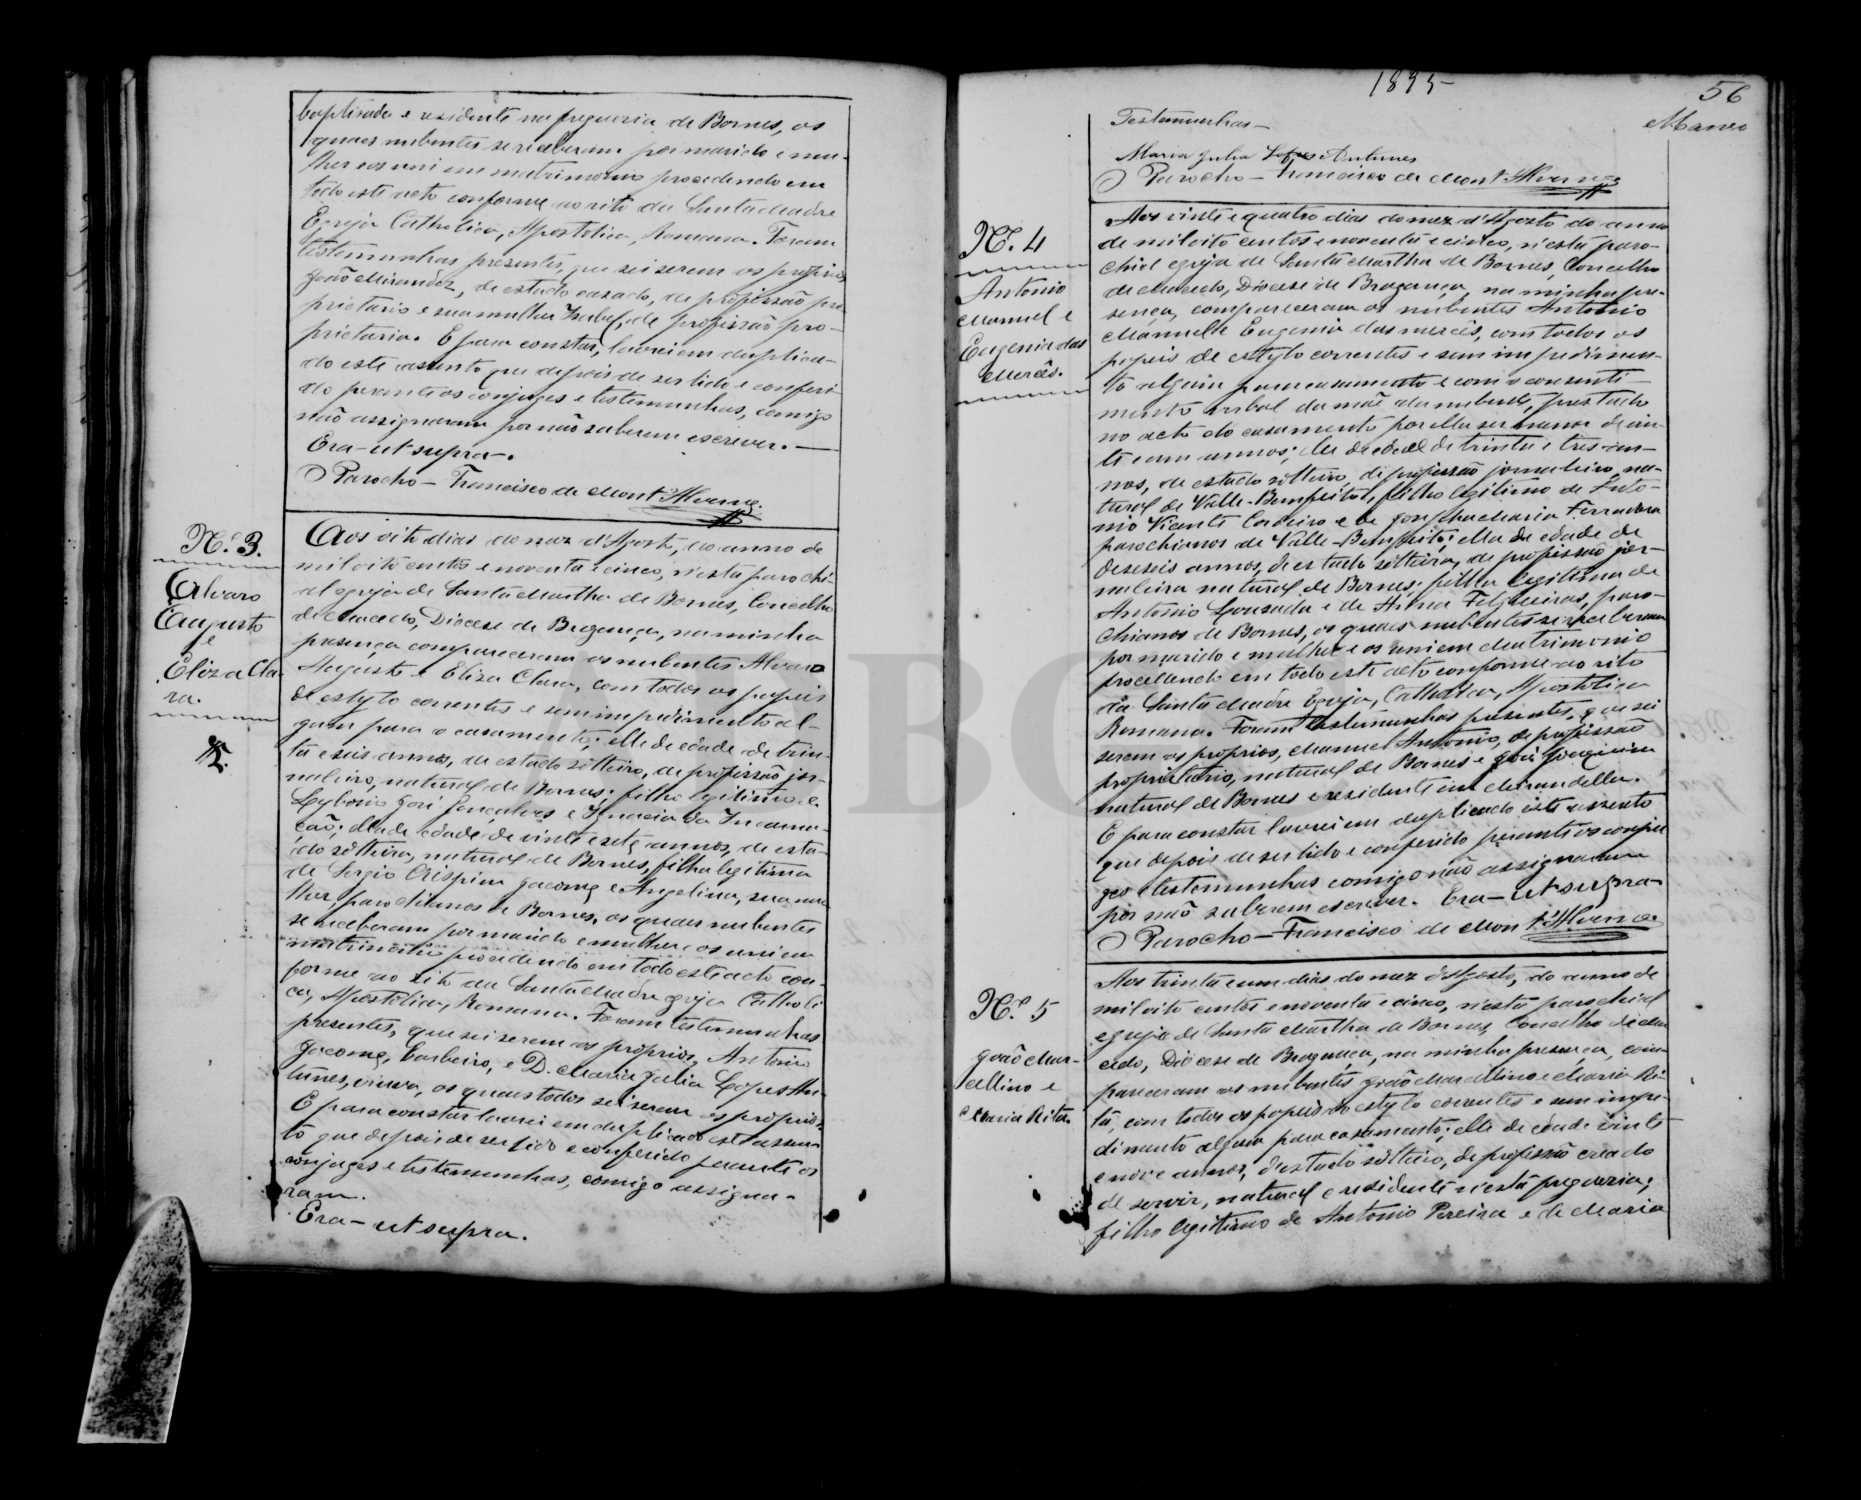 baptisada e residente na freguesia de Bornes, os
quaes nubentes se receberam por marido e mu-
lher e os uni em matrimonio procedendo em
todo este acto conforme ao rito da Santa Madre
Egreja Catholica, Apostolica, Romana. Foram
testemunhas presentes, que sei serem os proprios,
João Mirandez, de estado casado, de profissão pro-
prietario e sua mulher Isabel, de profissão pro-
prietaria. E para constar, lavrei em duplica-
do este assento que depois de ser lido e conferi-
do perante os conjuges e testemunhas, comigo
não assignaram por não saberem escrever.—
Era-ut supra-.
O Parocho - Francisco de Mont'Alverne.
Nº. 3.
Alvaro
Augusto
e
Eliza Cla-
ra.
Aos oito dias do mez d'Agosto, do anno de
mil oito centos e noventa e cinco, n'esta parochi-
al egreja de Santa Martha de Bornes, Concelho
de Macedo, Diocese de Bragança, na minha
presença compareceram os nubentes Alvaro
Augusto e Eliza Clara, com todos os papeis
de estylo correntes e sem impedimento al-
gum para o casamento; elle de edade de trin-
ta e seis annos, de estado solteiro, de profissão jor-
naleiro, natural de Bornes; filho legitimo de
Lyborio José Gonçalves e Ignacia da Incarna-
ção; ella de edade de vinte e sete annos, de esta-
do solteira, natural de Bornes, filha legitima
de Sergio Crispim Jacome e Angelina, sua mu-
lher, parochianos de Bornes, os quaes nubentes
se receberam por marido e mulher e os uni em
matrimonio procedendo em todo este acto con-
forme ao rito da Santa Madre Egreja Catholi-
ca, Apostolica, Romana. Foram testemunhas
presentes, que sei serem os proprios, Antonio
Jacome, barbeiro, e D. Maria Julia Lopes An-
tunes, viuva, os quaes todos sei serem os proprios.
E para constar lavrei em duplicado este assen-
to que depois de ser lido e conferido perante os
conjuges e testemunhas, comigo assigna-
ram.
Era-ut supra.
1895
56
Testemunhas-
Maria Julia Lopes Antunes
O Parocho - Francisco de Mont'Alverne
Nº. 4
Antonio
Manuel e
Eugenia das
Mercês.
Aos vinte e quatro dias do mez d'Agosto do anno
de mil oito centos e noventa e cinco, n'esta paro-
chial egreja de Santa Martha de Bornes, Concelho
de Macedo, Diocese de Bragança, na minha pre-
sença, compareceram os nubentes Antonio
Manuel e Eugenia das Mercês, com todos os
papeis de estylo correntes e sem impedimen-
to algum para casamento e com o consenti-
mento verbal da mãe da nubente, prestado
no acto do casamento por ella ser menor de vin-
te e um annos; elle de edade de trinta e tres an-
nos, de estado solteiro, de profissão jornaleiro, na-
tural de Valle-Bemfeito, filho legitimo de Anto-
nio Vicente Cordeiro e de Josepha Maria Ferradosa
parochianos de Valle-Bemfeito; ella de edade de
deseseis annos, de estado solteira, de profissão jor-
naleira natural de Bornes; filha legitima de
Antonio Louzada e de Anna Felgueiras, paro-
chianos de Bornes, os quaes nubentes se receberam
por marido e mulher e os uni em Matrimonio
procedendo em todo este acto conforme ao rito
da Santa Madre Egreja, Catholica, Apostolica
Romana. Foram testemunhas presentes, que sei
serem os proprios, Manuel Antonio, de profissão
proprietario, natural de Bornes e José Joaquim
natural de Bornes e residente em Mirandella.
E para constar lavrei em duplicado este assento
que depois de ser lido e conferido perante os conju-
ges e testemunhas comigo não assignaram
por não saberem escrever. Era-ut supra-
O Parocho - Francisco de Mont'Alverne
Nº. 5
João Mar-
cellino e
Maria Rita.
Aos trinta e um dias do mez d'Agosto, do anno de
mil oito centos e noventa e cinco, n'esta parochial
egreja de Santa Martha de Bornes, Concelho de Ma-
cedo, Diocese de Bragança, na minha presença, com-
pareceram os nubentes João Marcellino e Maria Ri-
ta, com todos os papeis do estylo correntes e sem impe-
dimento algum para casamento; elle de edade vinte
e nove annos, d'estado solteiro, de profissão creado
de servir, natural e residente n'esta freguesia;
filho legitimo de Antonio Pereira e de Maria